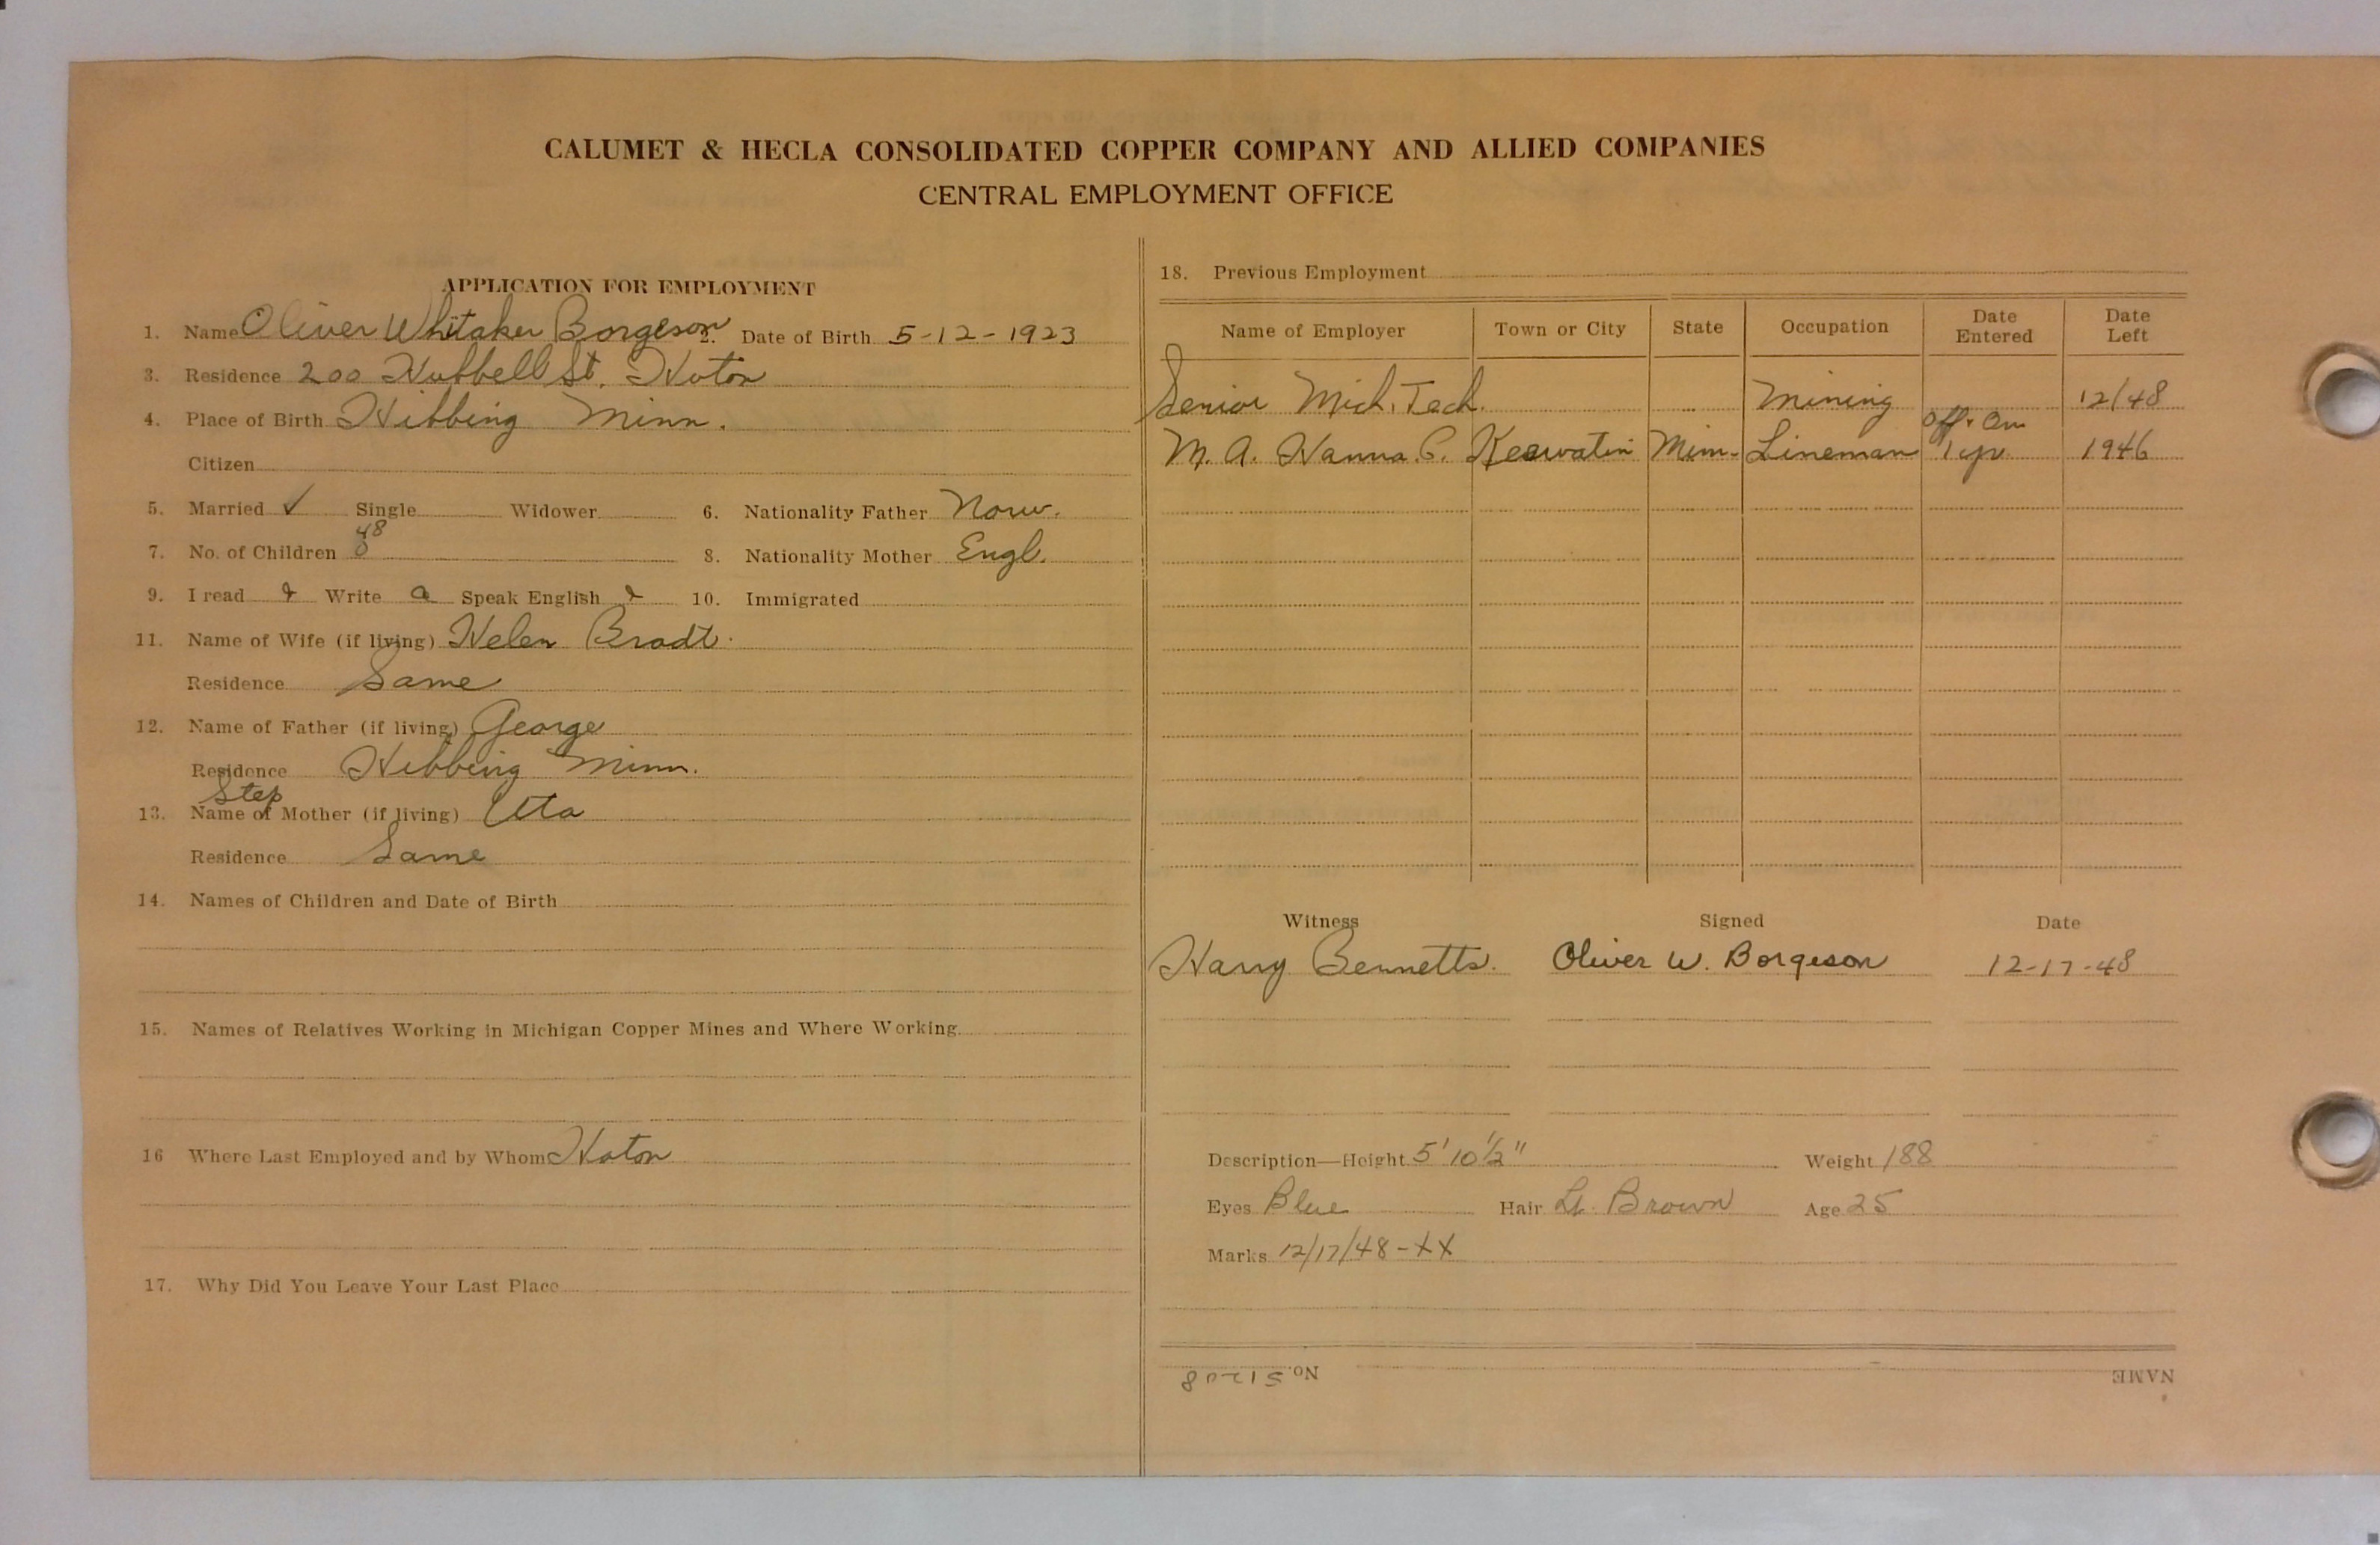 CALUMET & HECLA CONSOLIDATED COPPER COMPANY AND ALLIED COMPANIES
CENTRAL EMPLOYMENT OFFICE
APPLICATION FOR EMPLOYMENT
1. Name Oliver Whitaker Borgeson 2. Date of Birth 5-12-1923
3. Residence 200 Hubbell St. Hoton
4. Place of Birth Hibbing Minn.
Citizen
5. Married ✓ Single Widower 6. Nationality Father Norw.
48
7. No. of Children 0 8. Nationality Mother Engl.
9. I read Write Speak English 10. Immigrated
11. Name of Wife (if living) Helen Bradt.
Residence Same
12. Name of Father (if living) George
Residence Hibbing Minn.
Step
13. Name of Mother (if living) Etta
Residence Same
14. Names of Children and Date of Birth
15. Names of Relatives Working in Michigan Copper Mines and Where Working
16 Where Last Employed and by Whom Hoton
17. Why Did You Leave Your Last Place
18. Previous Employment
Name of Employer Town or City State Occupation Date Entered Date Left
Senior Mich. Tech. Mining 12/48
Off + On
M. A. Hanna C. Keewatin Minn. Lineman 1 yr 1946
Witness Signed Date
Harry Bennetts. Oliver W. Borgeson 12-17-48
Description—Height 5' 10 1/2" Weight 188
Eyes Blue Hair Lt. Brown Age 25
Marks 12/17/48-XX
NAME No. 51208